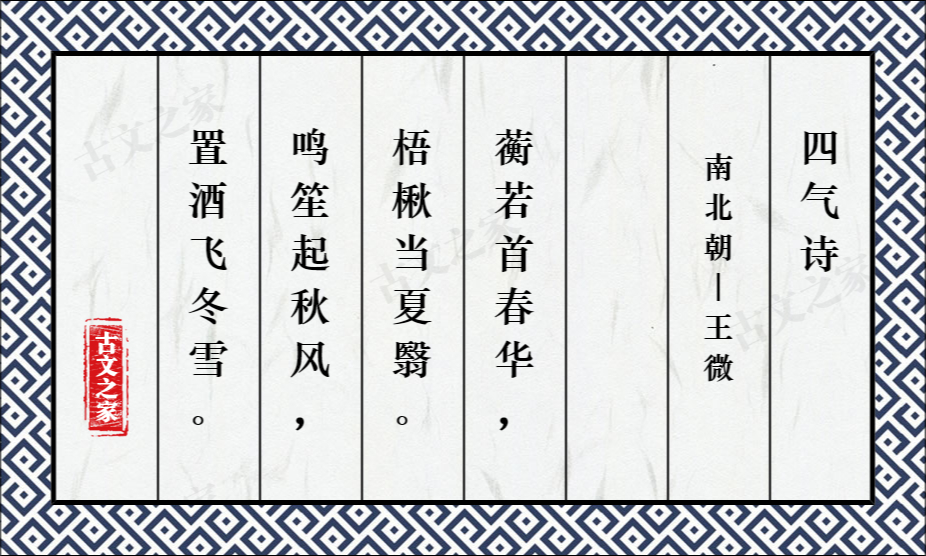 四气诗
南北朝–王微
蘅若首春华，
梧楸当夏翳。
鸣笙起秋风，
置酒飞冬雪。
古文之家
古文之家
古文之家
古文之家